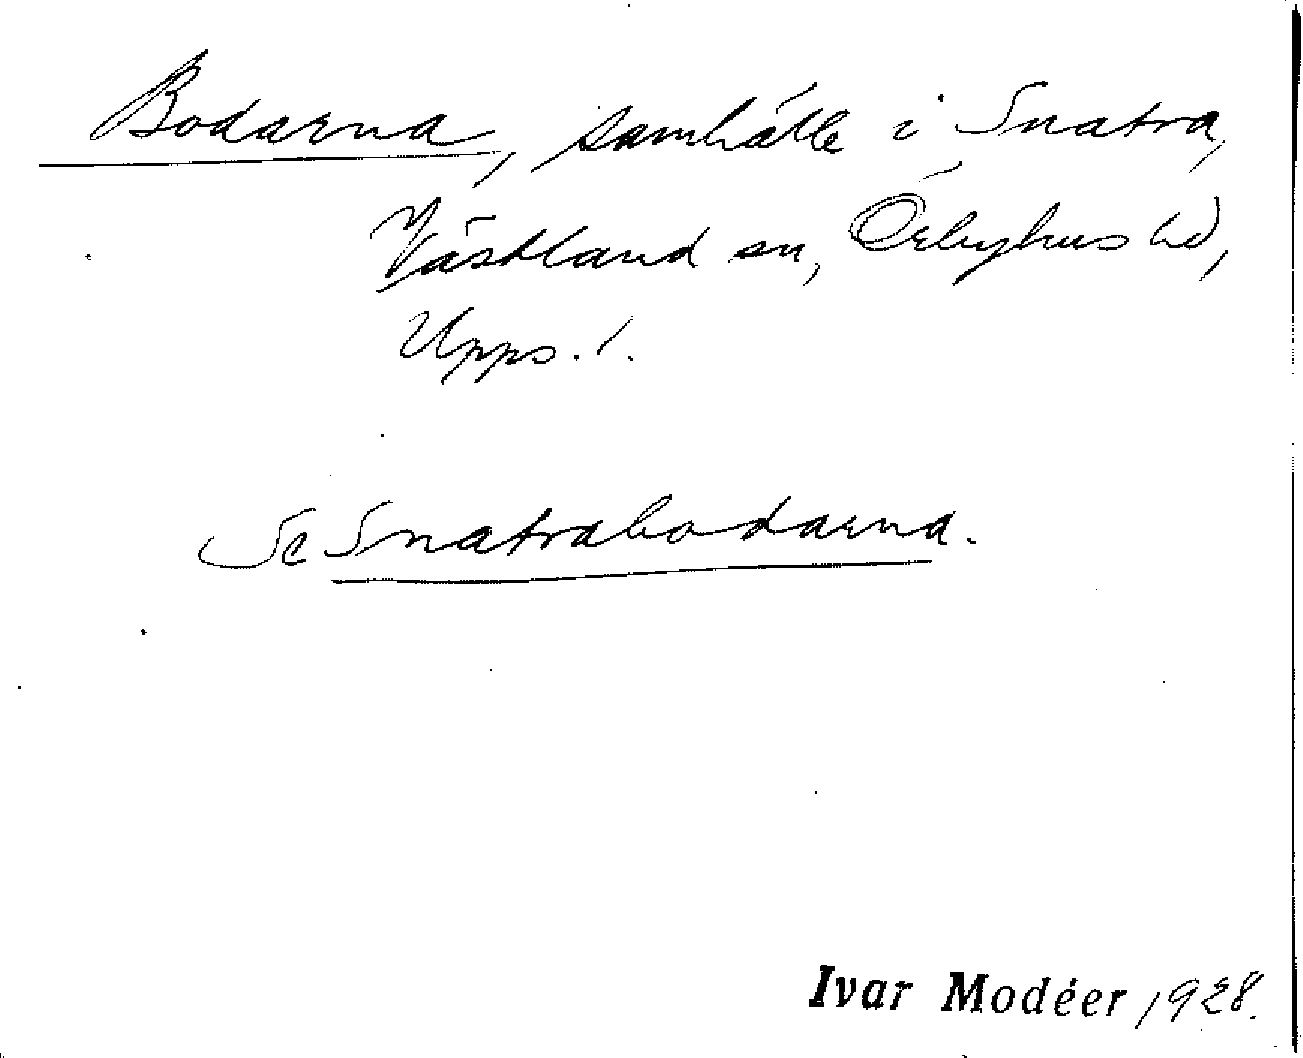 Bodarna, samhälle i Snatra,
Västland sn, Örbyhus hd,
Upps. l.
Se Snatrabodarna.
Ivar Modéer 1928.